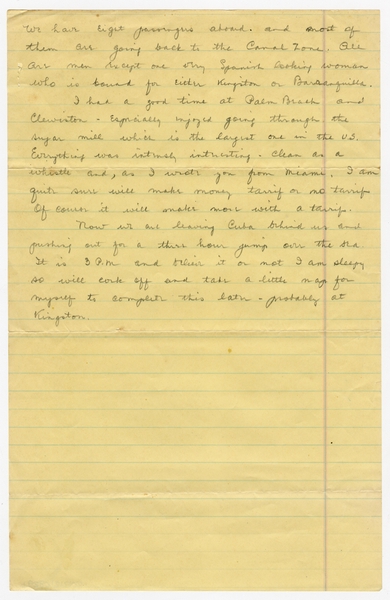 We have eight passengers aboard. and most of
them are going back to the Canal Zone. All
are men except one very Spanish looking woman
who is bound for either Kingston or Barranquilla.
I had a good time at Palm Beach and
Clewiston - Especially enjoyed going through the
sugar mill which is the largest one in the U.S.
Everything was intensely interesting - clean as a
whistle and, as I wrote you from Miami, I am
quite sure will make money tariff or no tariff.
Of course it will make more with a tariff.
Now we are leaving Cuba behind us and
pushing out for a three hour jump over the sea
It is 3 P.M and believe it or not I am sleepy
so will cork off and take a little nap for
myself to complete this later - probably at
Kingston.